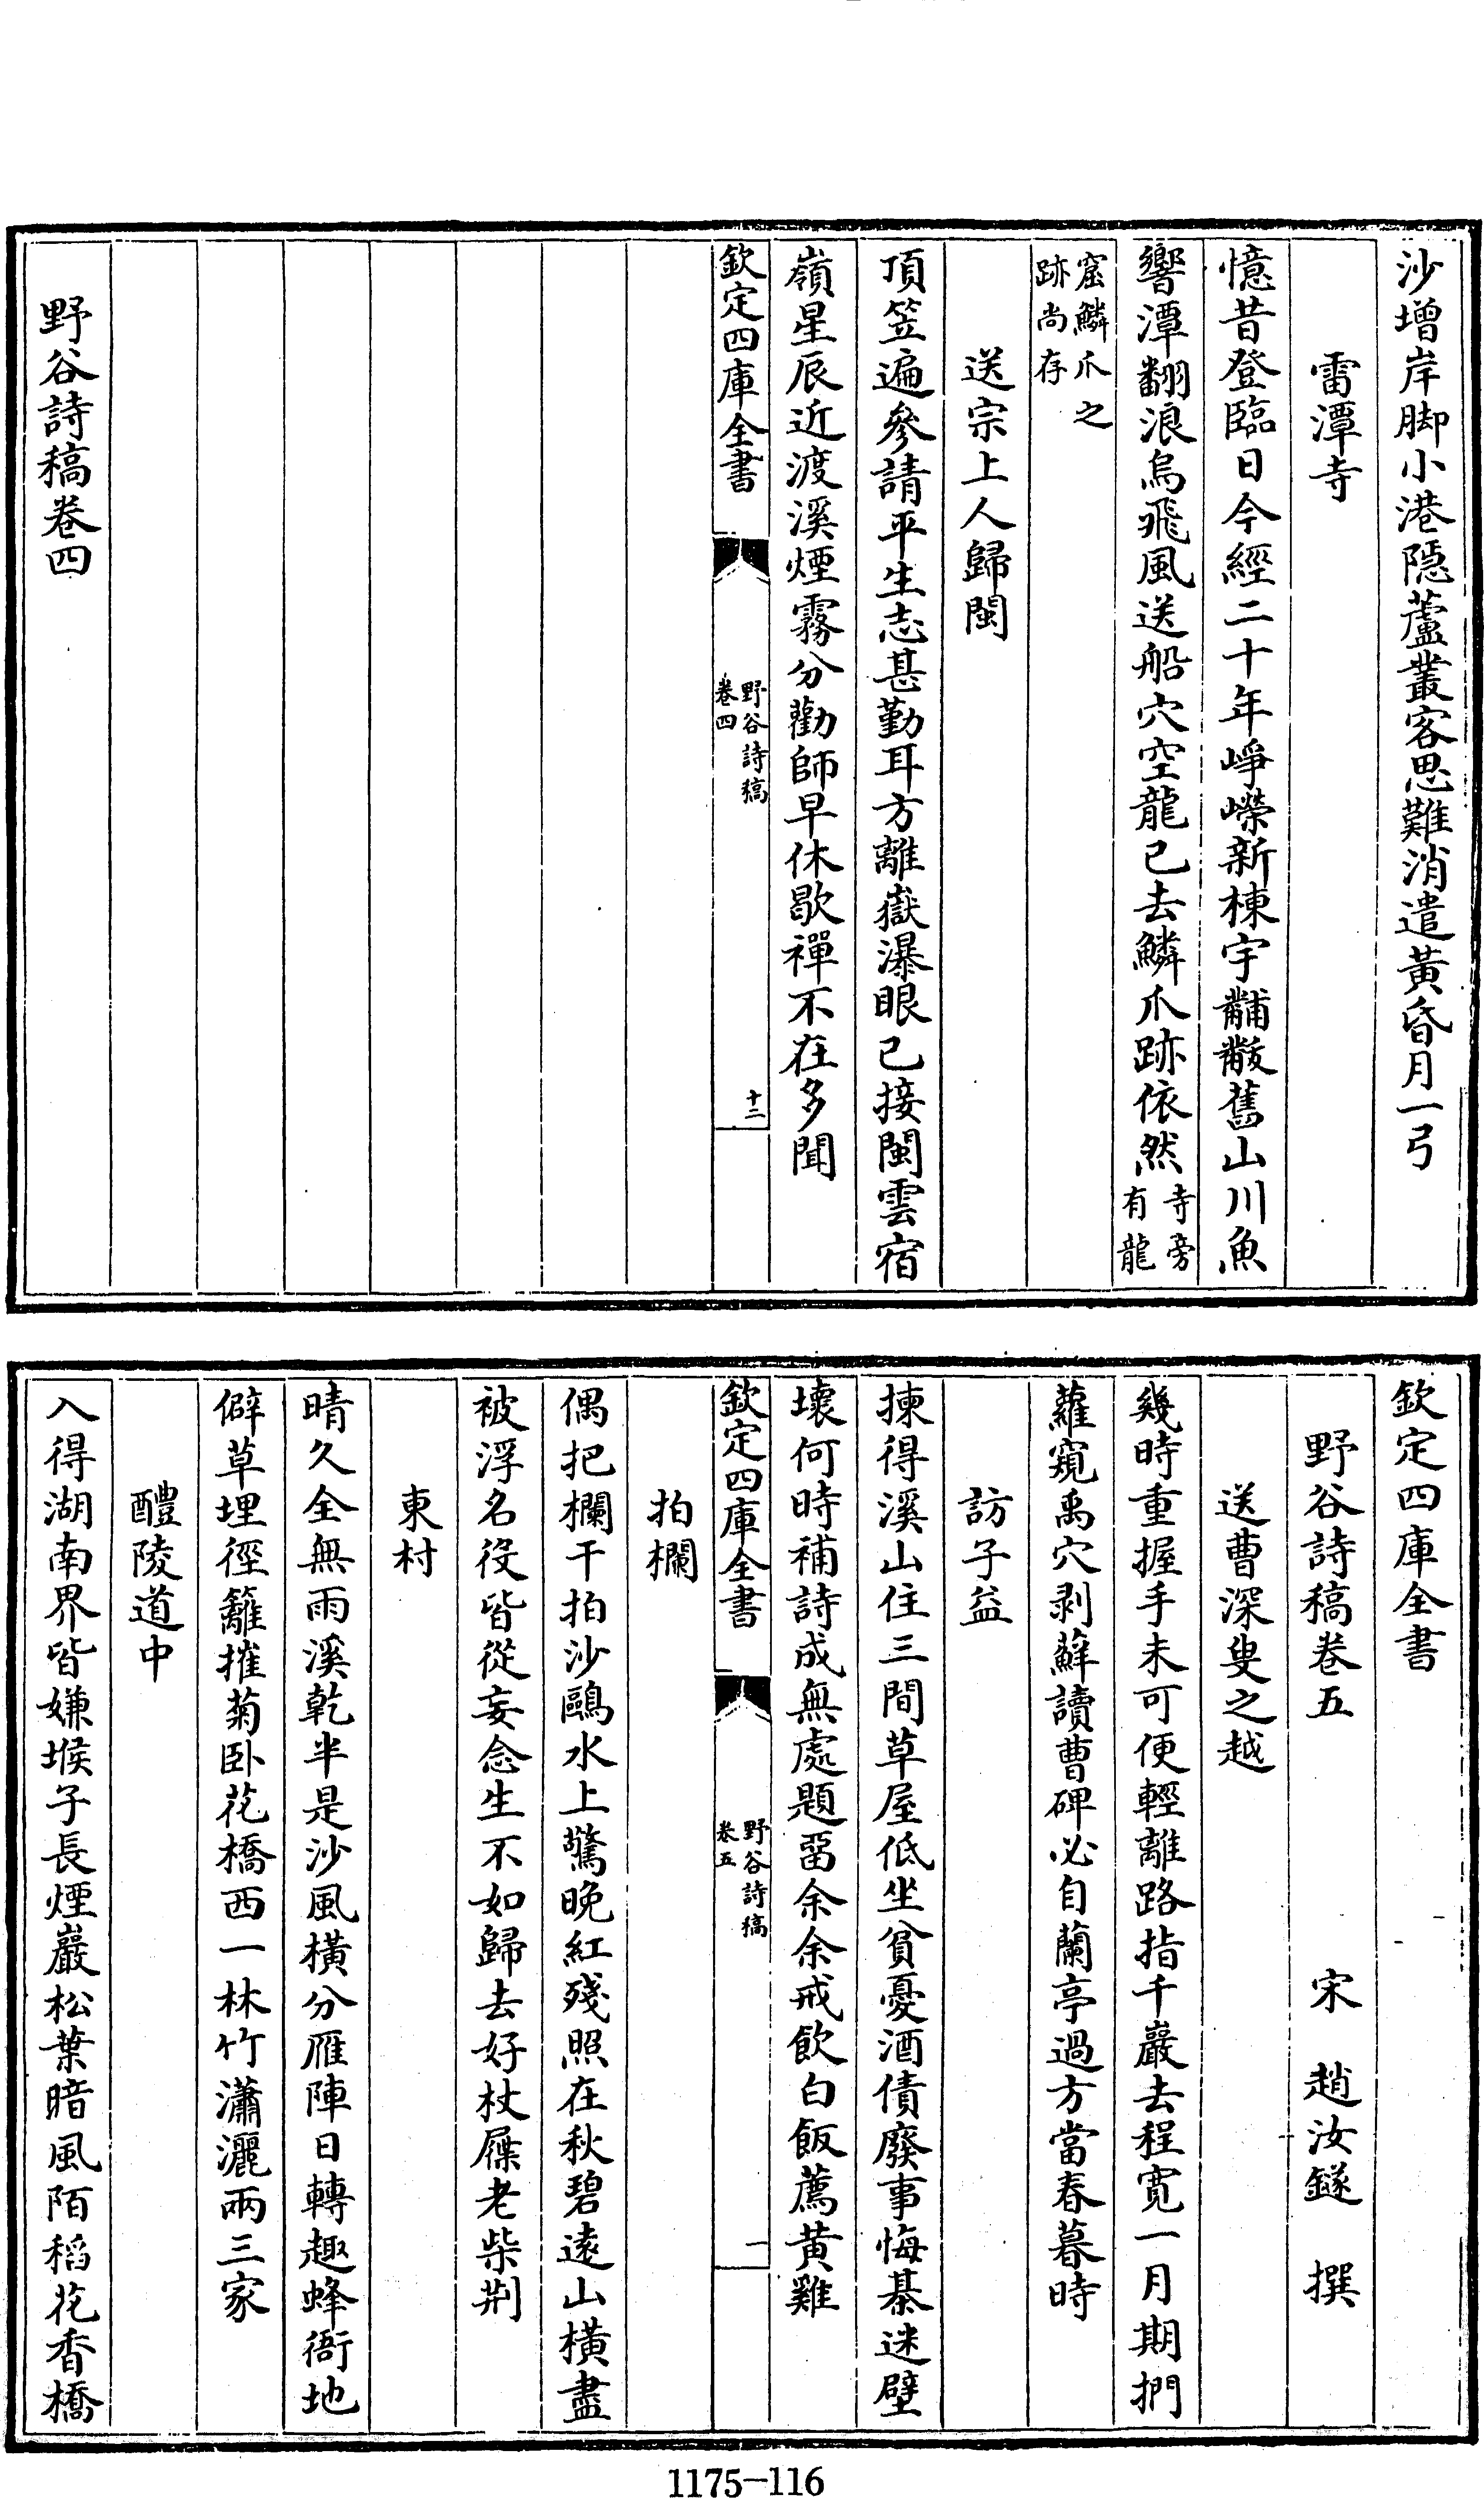 沙增岸脚小港隱蘆叢客思難消遣黃昏月一弓
雷潭寺
憶昔登臨日今經二十年崢嶸新棟宇黼黻舊山川魚
響潭翻浪烏飛風送船穴空龍已去鱗爪跡依然寺旁有龍
窟鱗爪之跡尚存
送宗上人歸閩
頂笠遍參請平生志甚勤耳方離嶽瀑眼已接閩雲宿
嶺星辰近渡溪煙霧分勸師早休歇禪不在多聞
欽定四庫全書
野谷詩稿
卷四
十二
野谷詩稿卷四
欽定四庫全書
野谷詩稿卷五
宋 趙汝鐩 撰
送曹深叟之越
幾時重握手未可便輕離路指千巖去程寬一月期捫
蘿窺禹穴剥蘚讀曹碑必自蘭亭過方當春暮時
訪子益
揀得溪山住三間草屋低坐貧憂酒債廢事悔棊迷壁
壞何時補詩成無處題畱余余戒飲白飯薦黄雞
欽定四庫全書
野谷詩稿
卷五
一
拍欄
偶把欄干拍沙鷗水上驚晚紅殘照在秋碧遠山橫盡
被浮名役皆從妄念生不如歸去好杖屧老柴荆
東村
晴久全無雨溪乾半是沙風橫分雁陣日轉趣蜂衙地
僻草埋徑籬摧菊卧花橋西一林竹瀟灑兩三家
醴陵道中
入得湖南界皆嫌堠子長煙巖松葉暗風陌稻花香橋
1175-116